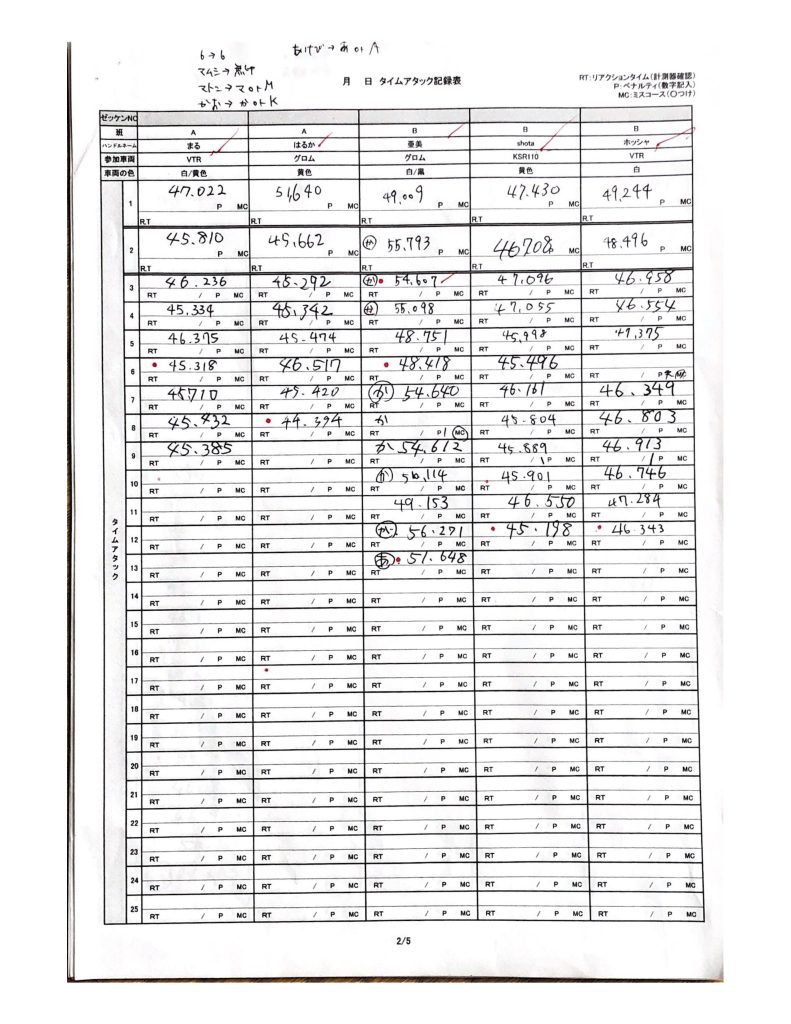 6→6 あけび→あ or A
マムシ→無印
マトン→マ or M
かお→か or K
月 日 タイムアタック記録表
RT:リアクションタイム(計測器確認)
P:ペナルティ(数字記入)
MC:ミスコース(○つけ)
ゼッケンNO
班 A A B B B
ハンドルネーム まる はるか 亜美 shota ホッシャ
参加車両 VTR グロム グロム KSR110 VTR
車両の色 白/黄色 黄色 白/黒 黄色 白
47.022 51,640 49.009 47.430 49,244
1 P MC P MC P MC P MC P MC
R.T R.T R.T R.T R.T
45.810 45,662 か 55,793 46708 48,496
2 P MC P MC P MC P MC P MC
R.T R.T R.T R.T R.T
3 46.236 45.292 か 54,607 47,096 46.958
RT / P MC RT / P MC RT / P MC RT / P MC RT / P MC
4 45.334 45,342 55,098 47,055 46.554
RT / P MC RT / P MC RT / P MC RT / P MC RT / P MC
5 46.375 45.474 48.751 45,998 47,375
RT / P MC RT / P MC RT / P MC RT / P MC RT / P MC
6 45.318 46.517 48.418 45.496
RT / P MC RT / P MC RT / P MC RT / P MC RT / P MC
7 45710 45.420 か 54.640 46.161 46.349
RT / P MC RT / P MC RT / P MC RT / P MC RT / P MC
8 45.432 44.394 か 45.804 46.803
RT / P MC RT / P MC RT / P1 MC RT / P MC RT / P MC
9 45.385 か 54,612 45.889 46.913
RT / P MC RT / P MC RT / P MC RT / P MC RT / P MC
10 か 56,114 45.901 46.746
RT / P MC RT / P MC RT / P MC RT / P MC RT / P MC
11 49.153 46.550 47.284
RT / P MC RT / P MC RT / P MC RT / P MC RT / P MC
12 か 56.271 45.198 46.343
RT / P MC RT / P MC RT / P MC RT / P MC RT / P MC
13 あ 51.648
RT / P MC RT / P MC RT / P MC RT / P MC RT / P MC
14
RT / P MC RT / P MC RT / P MC RT / P MC RT / P MC
15
RT / P MC RT / P MC RT / P MC RT / P MC RT / P MC
16
RT / P MC RT / P MC RT / P MC RT / P MC RT / P MC
17
RT / P MC RT / P MC RT / P MC RT / P MC RT / P MC
18
RT / P MC RT / P MC RT / P MC RT / P MC RT / P MC
19
RT / P MC RT / P MC RT / P MC RT / P MC RT / P MC
20
RT / P MC RT / P MC RT / P MC RT / P MC RT / P MC
21
RT / P MC RT / P MC RT / P MC RT / P MC RT / P MC
22
RT / P MC RT / P MC RT / P MC RT / P MC RT / P MC
23
RT / P MC RT / P MC RT / P MC RT / P MC RT / P MC
24
RT / P MC RT / P MC RT / P MC RT / P MC RT / P MC
25
RT / P MC RT / P MC RT / P MC RT / P MC RT / P MC
タイムアタック
2/5